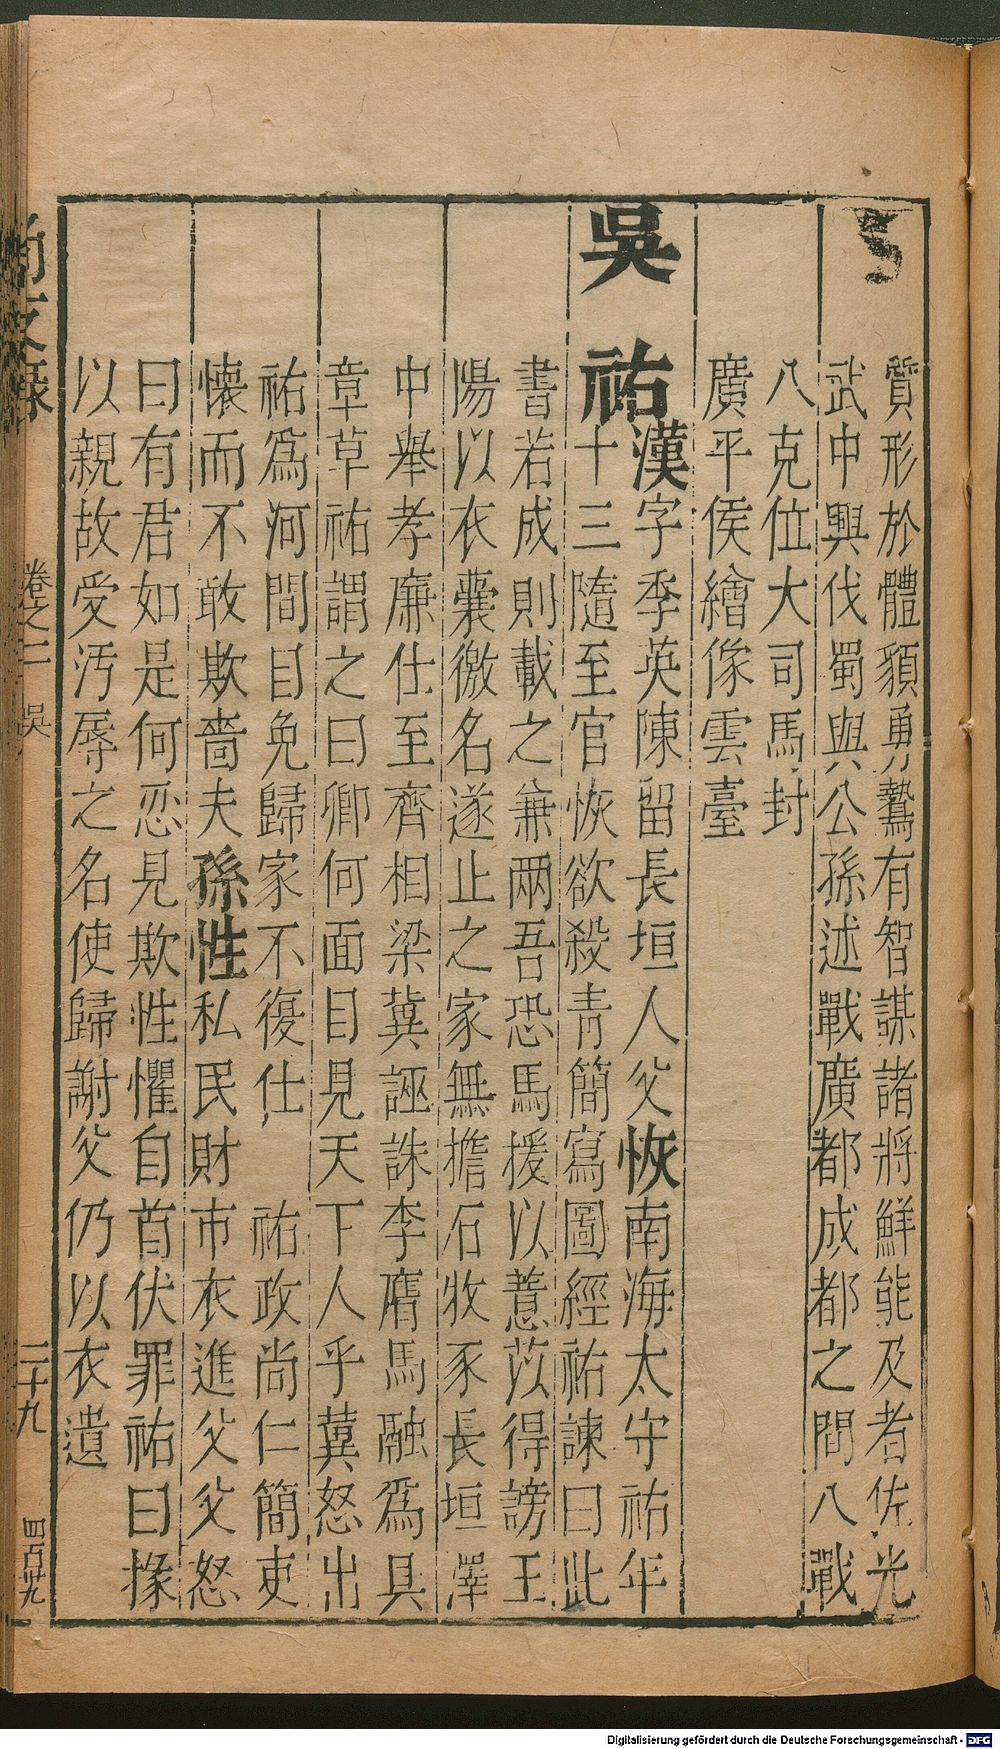 質形於體䫉勇鷙有智謀諸將鮮能及者佐光
武中興伐蜀與公孫述戰廣都成都之間八戰
八克位大司馬封
廣平侯繪像雲臺
吳祐漢字季英陳留長垣人父恢南海太守祐年
十三隨至官恢欲殺青簡寫圖經祐諫曰此
書若成則載之兼兩吾恐馬援以薏苡得謗王
陽以衣囊徼名遂止之家無擔石牧豕長垣澤
中舉孝廉仕至齊相梁冀誣誅李膺馬融爲具
章草祐謂之曰卿何面目見天下人乎冀怒出
祐爲河間目免歸家不復仕 祐政尚仁簡吏
懷而不敢欺嗇夫孫性私民財市衣進父父怒
曰有君如是何恋見欺性懼自首伏罪祐曰掾
以親故受汚辱之名使歸謝父仍以衣遺
尚友錄
卷之二 吳
二十九
四百廿九
Digitalisierung gefördert durch die Deutsche Forschungsgemeinschaft - DFG